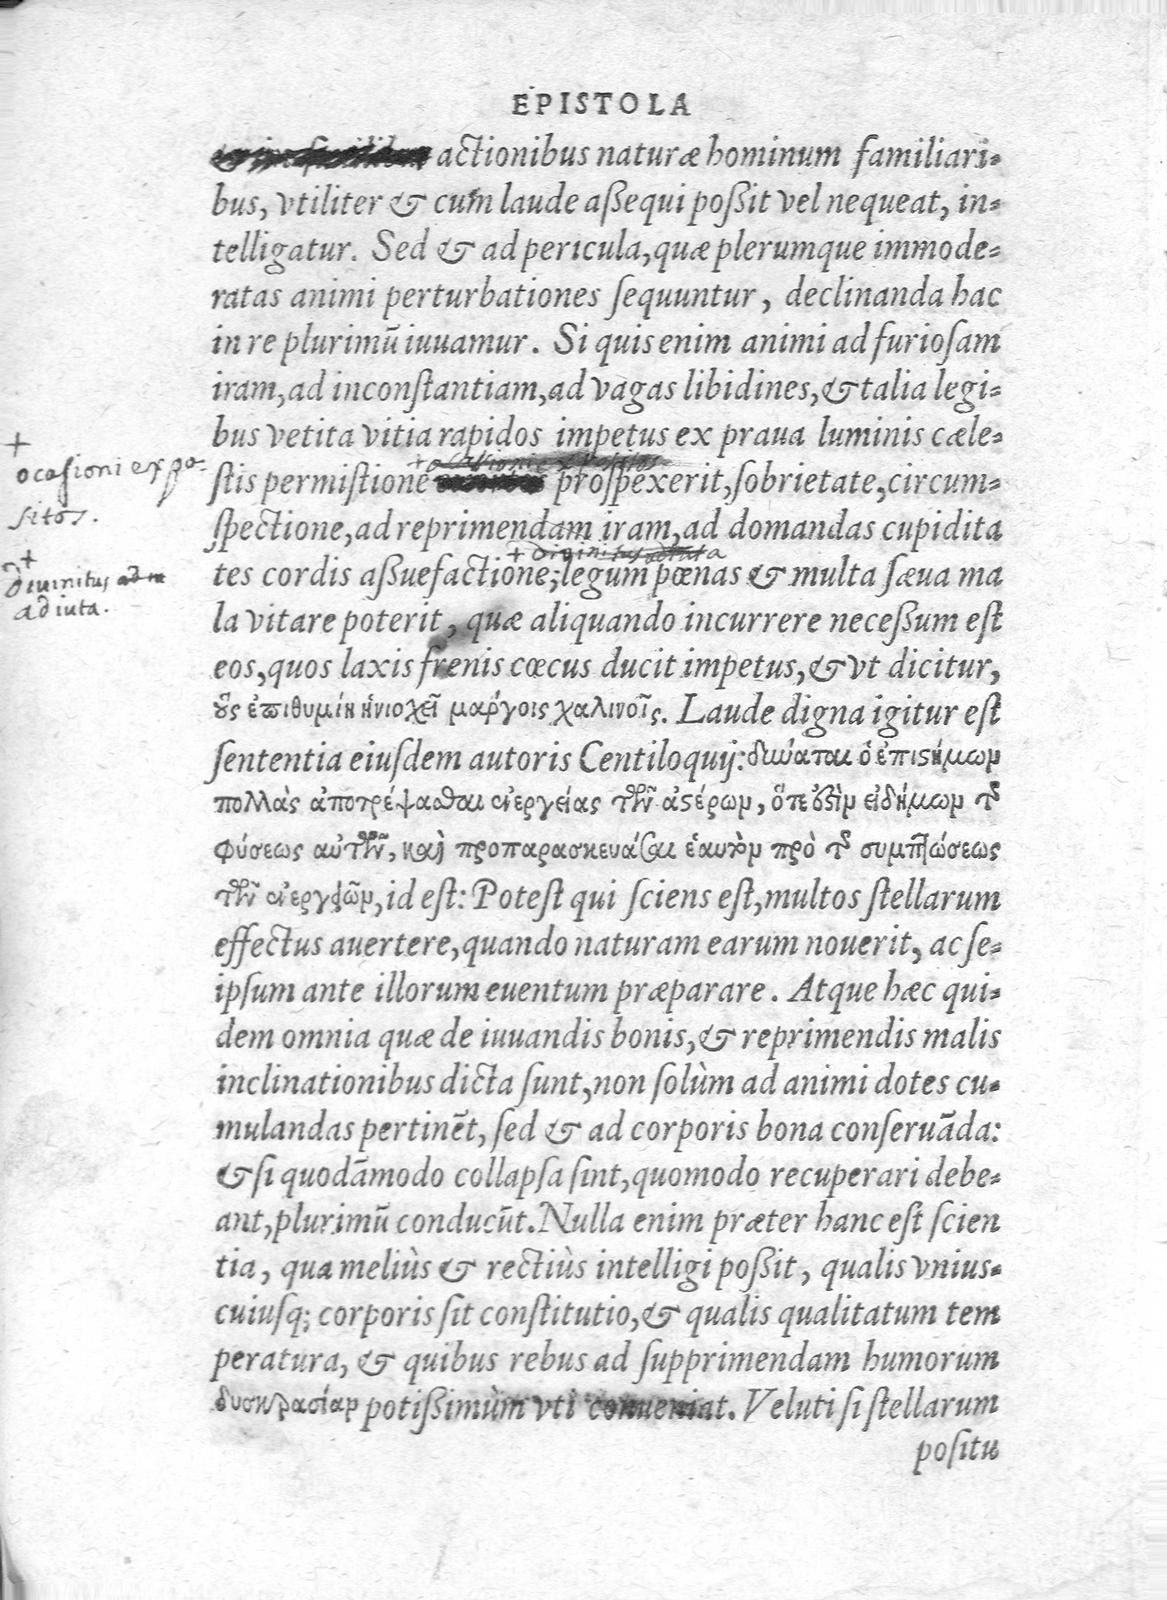 EPISTOLA
actionibus naturæ hominum familiari-
bus, vtiliter & cum laude aßequi poßit vel nequeat, in-
telligatur. Sed & ad pericula, quæ plerumque immode-
ratas animi perturbationes ſequuntur, declinanda hac
in re plurimū iuuamur. Si quis enim animi ad furioſam
iram, ad inconſtantiam, ad vagas libidines, & talia legi-
bus vetita vitia rapidos impetus ex praua luminis cæle-
+ ocasioni expo-
sitos.
+ occasioni expositos
ſtis permiſtione proſpexerit, ſobrietate, circum-
ſpectione, ad reprimendam iram, ad domandas cupidita
+ diuinitus adiuta
+ diuinitus
adiuta.
tes cordis aßuefactione; legum pœnas & multa ſæua ma
la vitare poterit, quæ aliquando incurrere neceßum eſt
eos, quos laxis frenis cœcus ducit impetus, & vt dicitur,
οὓς ἐπιθυμίη ἡνιοχεῖ μάργοις χαλινοῖς. Laude digna igitur eſt
ſententia eiuſdem autoris Centiloquij: δύναται ὁ ἐπιστήμων
πολλὰς ἀποτρέψασθαι ἐνεργείας τῶν ἀστέρων, ὅτε ἐστὶν εἰδήμων τῆς
φύσεως αὐτῶν, καὶ προπαρασκευάσαι ἑαυτὸν πρὸ τῆς συμπτώσεως
τῶν ἐνεργειῶν, id eſt: Poteſt qui ſciens eſt, multos ſtellarum
effectus auertere, quando naturam earum nouerit, ac ſe-
ipſum ante illorum euentum præparare. Atque hæc qui-
dem omnia quæ de iuuandis bonis, & reprimendis malis
inclinationibus dicta ſunt, non ſolùm ad animi dotes cu-
mulandas pertinēt, ſed & ad corporis bona conſeruāda:
& ſi quodāmodo collapſa ſint, quomodo recuperari debe-
ant, plurimū conducūt. Nulla enim præter hanc eſt ſcien
tia, qua meliùs & rectiùs intelligi poßit, qualis vnius-
cuiuſq; corporis ſit conſtitutio, & qualis qualitatum tem
peratura, & quibus rebus ad ſupprimendam humorum
δυσκρασίαν potißimùm vti conueniat. Veluti ſi ſtellarum
poſitu